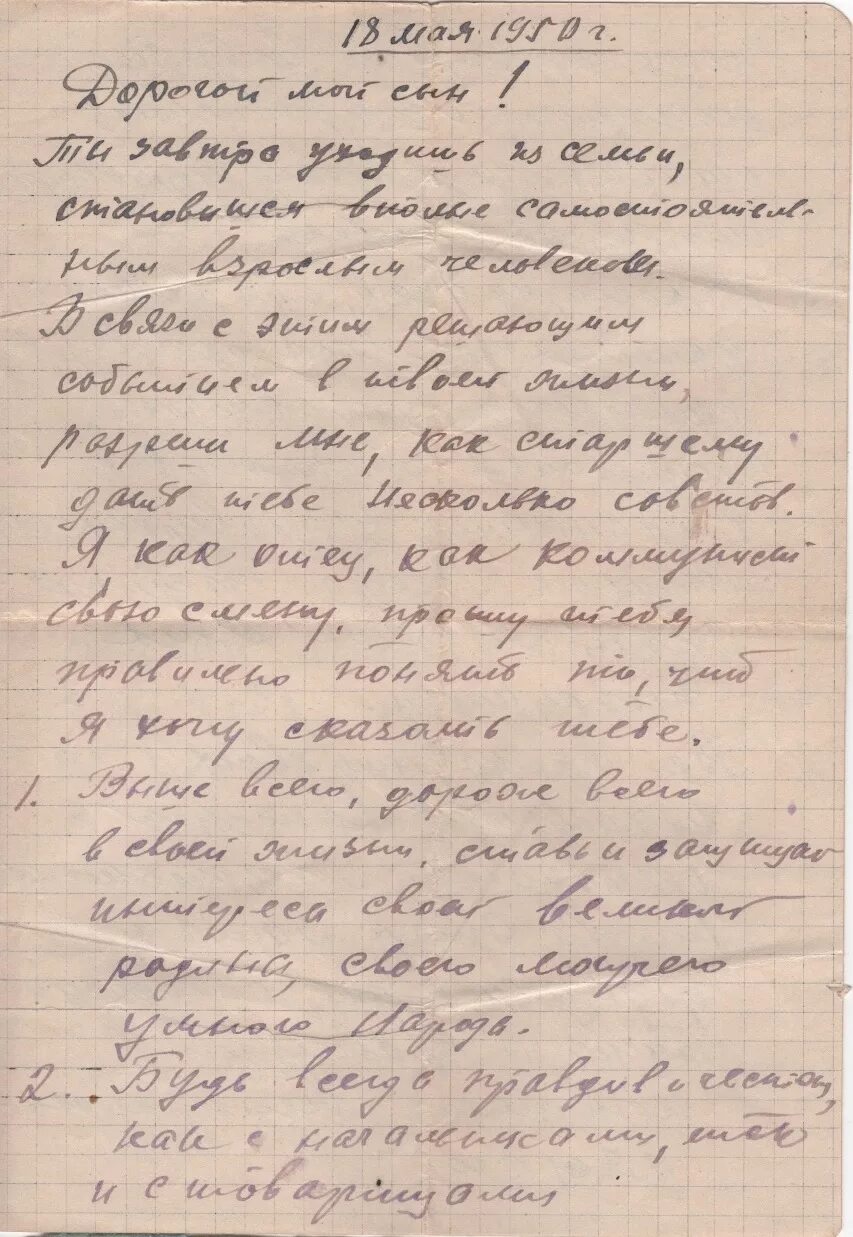 18 мая 1950 г.
Дорогой мой сын!
Ты завтра уходишь из семьи,
становишься вполне самостоятель-
ным взрослым человеком.
В связи с этим решающим
событием в твоей жизни,
разреши мне, как старшему
дать тебе несколько советов.
Я как отец, как коммунист
свою смену, прошу тебя
правильно понять то, что
я хочу сказать тебе.
1. Выше всего, дороже всего
в своей жизни, ставь и защищай
интересы своей великой
родины, своего могучего
умного народа.
2. Будь всегда правдив и честен,
как с начальниками, так
и с товарищами